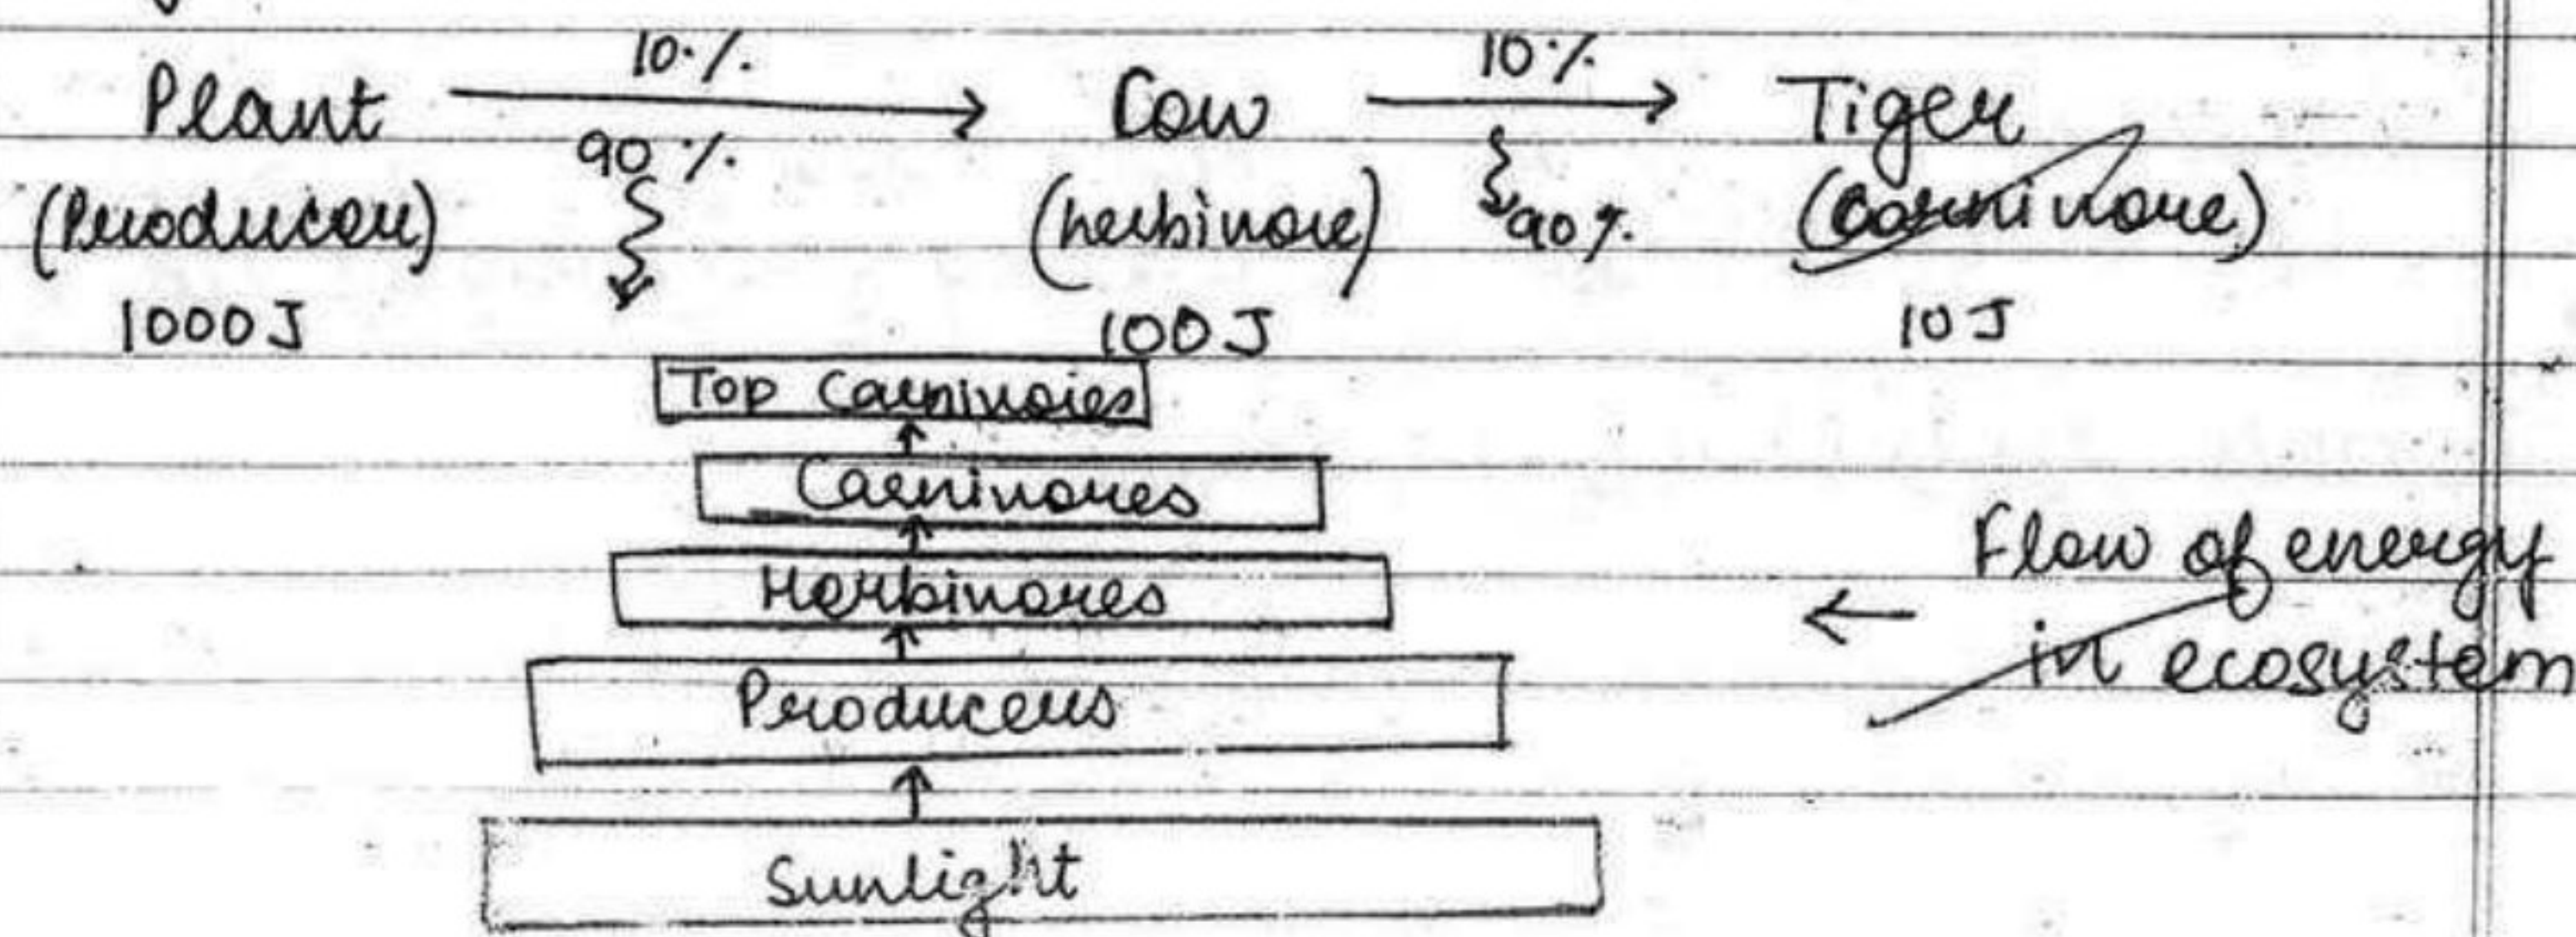 10% 10%
Plant Cow Tiger
90% 90%
(Producer) (herbivore) (carnivore)
1000J 100J 10J
Top Carnivores
Carnivores
Herbivores
Producers
Sunlight
Flow of energy
in ecosystem